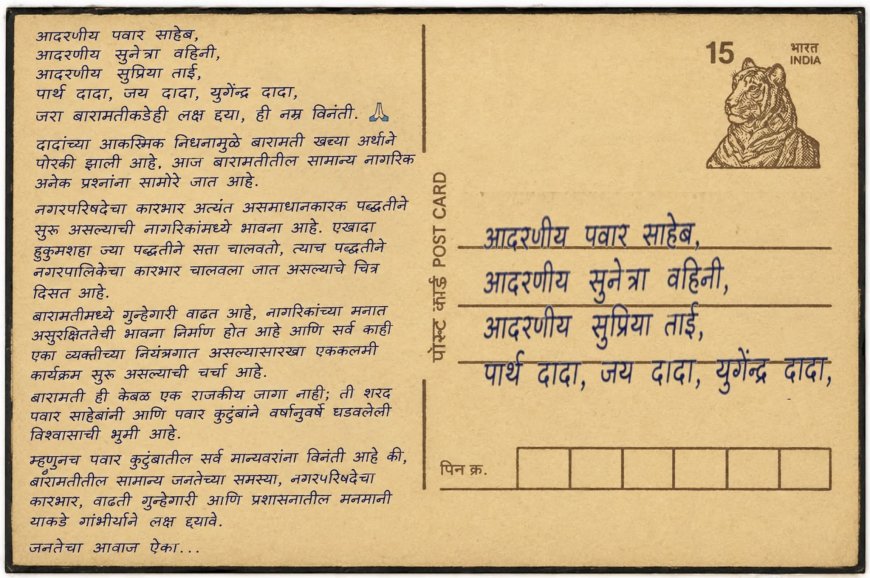 आदरणीय पवार साहेब,
आदरणीय सुनेत्रा वहिनी,
आदरणीय सुप्रिया ताई,
पार्थ दादा, जय दादा, युगेंद्र दादा,
जरा बारामतीकडेही लक्ष द्दया, ही नम्र विनंती. 🙏
दादांच्या आकस्मिक निधनामुळे बारामती खऱ्या अर्थाने
पोरकी झाली आहे. आज बारामतीतील सामान्य नागरिक
अनेक प्रश्नांना सामोरे जात आहे.
नगरपरिषदेचा कारभार अत्यंत असमाधानकारक पध्दतीने
सुरू असल्याची नागरिकांमध्ये भावना आहे. एखादा
हुकुमशहा ज्या पध्दतीने सत्ता चालवतो, त्याच पध्दतीने
नगरपालिकेचा कारभार चालवला जात असल्याचे चित्र
दिसत आहे.
बारामतीमध्ये गुन्हेगारी वाढत आहे, नागरिकांच्या मनात
असुरक्षिततेची भावना निर्माण होत आहे आणि सर्व काही
एका व्यक्तीच्या नियंत्रणात असल्यासारखा एककलमी
कार्यक्रम सुरू असल्याची चर्चा आहे.
बारामती ही केबळ एक राजकीय जागा नाही; ती शरद
पवार साहेबांनी आणि पवार कुटुंबाने वर्षानुवर्षे घडवलेली
विश्वासाची भुमी आहे.
म्हणुनच पवार कुटुंबातील सर्व मान्यवरांना विनंती आहे की,
बारामतीतील सामान्य जनतेच्या समस्या, नगरपरिषदेचा
कारभार, वाढती गुन्हेगारी आणि प्रशासनातील मनमानी
याकडे गांभीर्याने लक्ष द्दयावे.
जनतेचा आवाज ऐका...
पोस्ट कार्ड POST CARD
15
भारत
INDIA
आदरणीय पवार साहेब,
आदरणीय सुनेत्रा वहिनी,
आदरणीय सुप्रिया ताई,
पार्थ दादा, जय दादा, युगेंद्र दादा,
पिन क्र.